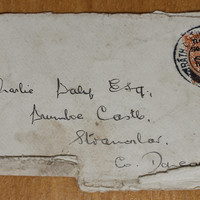 Charlie Daly Esq.,
Drumboe Castle.
Stranorlar.
Co. Donegal